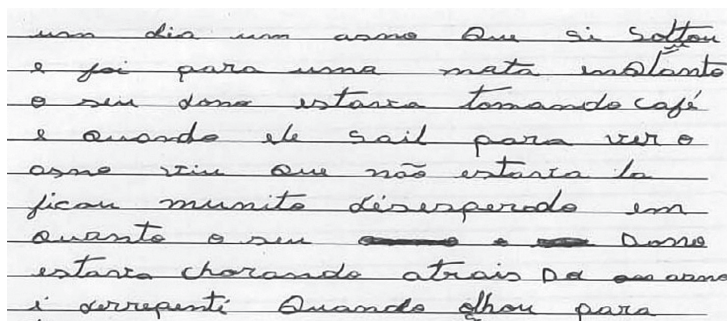 um dia um asno que si soltou
e foi para uma mata enotanto
o seu dono estava tomando café
e quando ele sail para ver o
asno viu que não estava la
ficou munito disesperodo em
quanto o seu Dono
estava chorando atrais Do asno
i derrepenti Quando olhou para